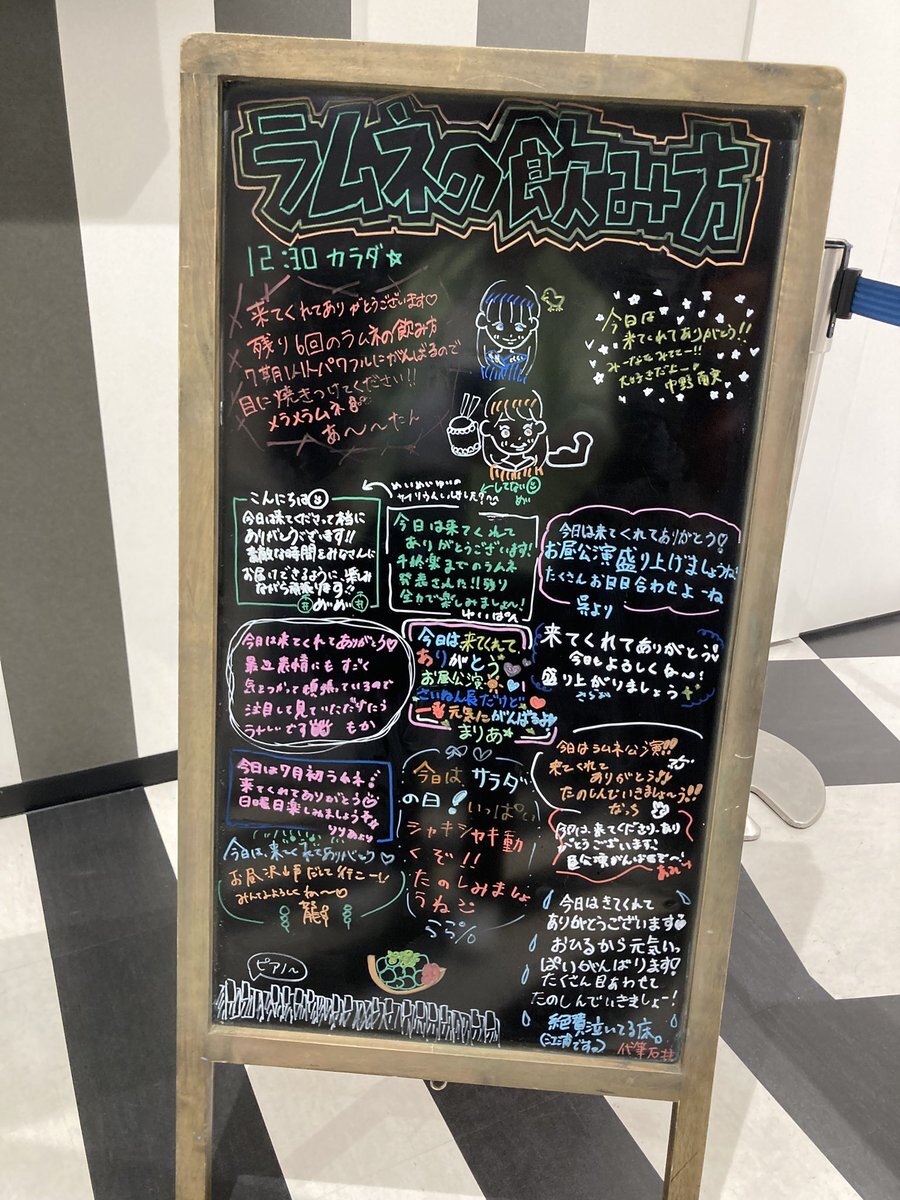 ラムネの飲み方
12:30 カラダ☆
来てくれてありがとうございます♡
残り6回のラムネの飲み方
パワフルにがんばるので
目に焼きつけてください!!
メラメラムネ
あ〜〜たん
今日は
来てくれてありがとう!!
大好きだよー
してない
めい
こんにちは
今日は来てくださって本当に
ありがとうございます!!
素敵な時間をみなさんに
お届けできるように、楽しみ
ながら頑張ります!!
めいめい
今日は来てくれて
ありがとうございます!
千秋楽までのラムネ
発表された!!残り
全力で楽しみましょ〜!
ゆいはん
今日は来てくれてありがとう♡
お昼公演盛り上げましょうね!
たくさんお目目合わせよーね
呉より
今日は来てくれてありがとう♡
最近表情にもすごく
気をつかって頑張っているので
注目して見ていただけたら
うれしいです
もか
今日は来てくれて
ありがとう
お昼公演
さいねん長だけど
一番元気にがんばるよ
まりあ☆
来てくれてありがとう♡
今日もよろしくね〜!
盛り上がりましょう
さらぶ
今日は7月初ラムネ
来てくれてありがとう♡
日曜日楽しみましょう
りりあより
今日は、サラダ
の日!いっぱい
シャキシャキ動
くぞ!!
たのしみましょ
うね
今日はラムネ公演!!
来てくれて
ありがとう!!
たのしんでいきましょー!!
なっち
今日は、来てくださりあり
がとうございます!
昼公演がんばるぞ〜!
今日は、来てくれてありがとう♡
お昼沢山声だして行こー!
みんなよろしくね〜♡
ピアノ〜
今日はきてくれて
ありがとうございます
おひるから元気いっ
ぱいがんばります!
たくさん目あわせて
たのしんでいきましょー!
絶賛泣いてる床。
(江浦ですっ)
代筆石井